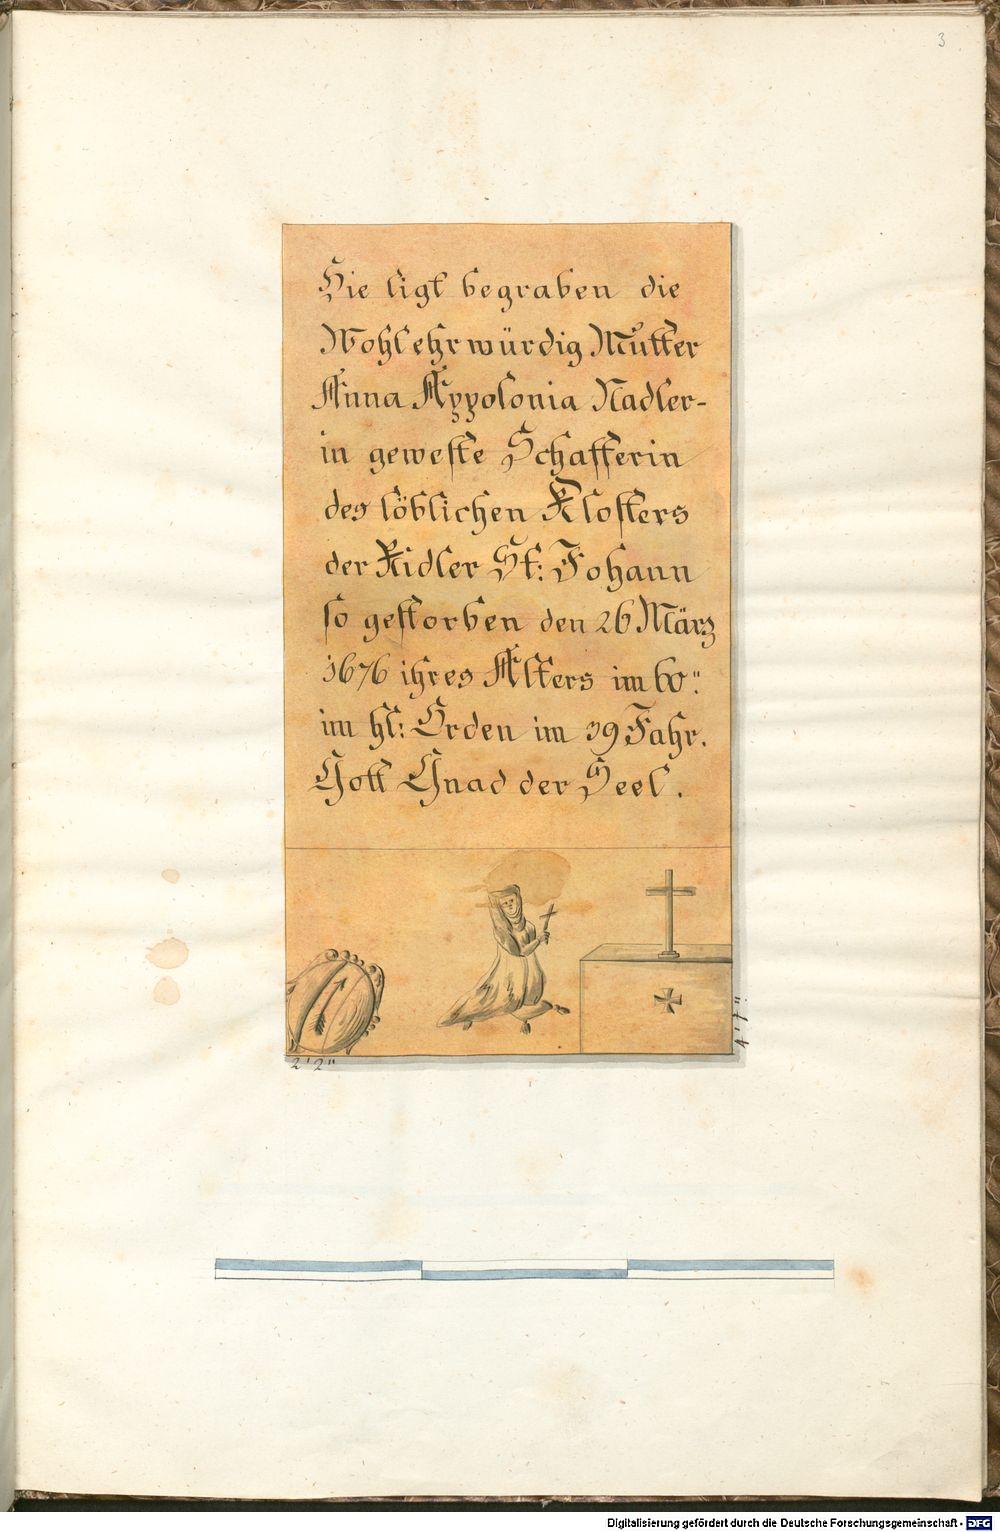 3
Hie ligt begraben die
Wohlehrwürdig Mutter
Anna Appolonia Nadler-
in geweste Schafferin
des löblichen Klosters
der Ridler St: Johann
so gestorben den 26 März
1676 ihres Alters im 60":
im hl: Orden im 39 Jahr.
Gott Gnad der Seel.
4' 7":
2' 2"
Digitalisierung gefördert durch die Deutsche Forschungsgemeinschaft - DFG